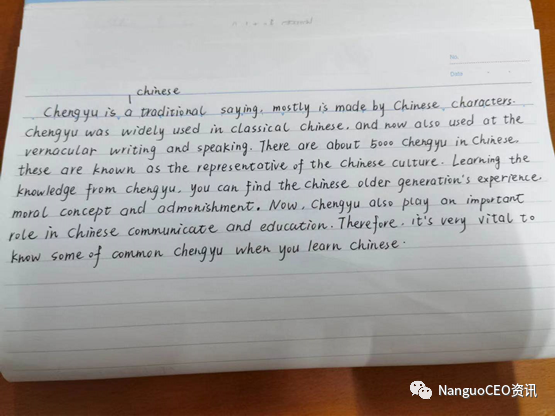 No.
Date
chinese
Chengyu is a traditional saying, mostly is made by Chinese characters.
Chengyu was widely used in classical chinese, and now also used at the
vernacular writing and speaking. There are about 5000 chengyu in Chinese,
these are known as the representative of the chinese culture. Learning the
knowledge from chengyu, you can find the chinese older generation's experience,
moral concept and admonishment. Now, chengyu also play an important
role in Chinese communicate and education. Therefore, it's very vital to
know some of common chengyu when you learn chinese.
NanguoCEO资讯